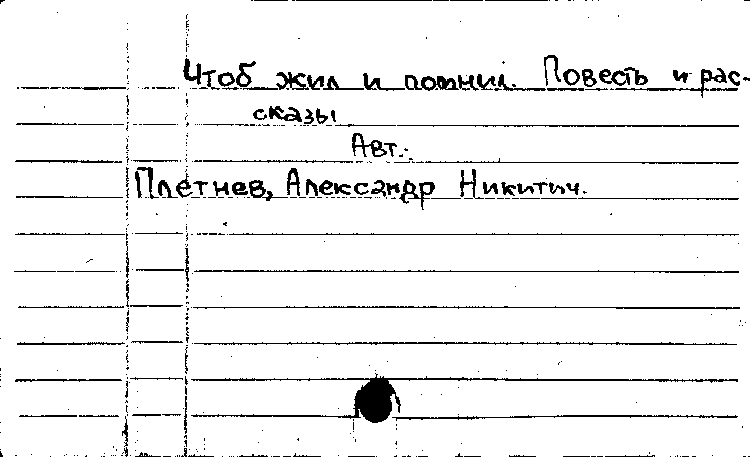 Чтоб жил и помнил. Повесть и рас-
сказы
Авт.:
Плетнев, Александр Никитич.